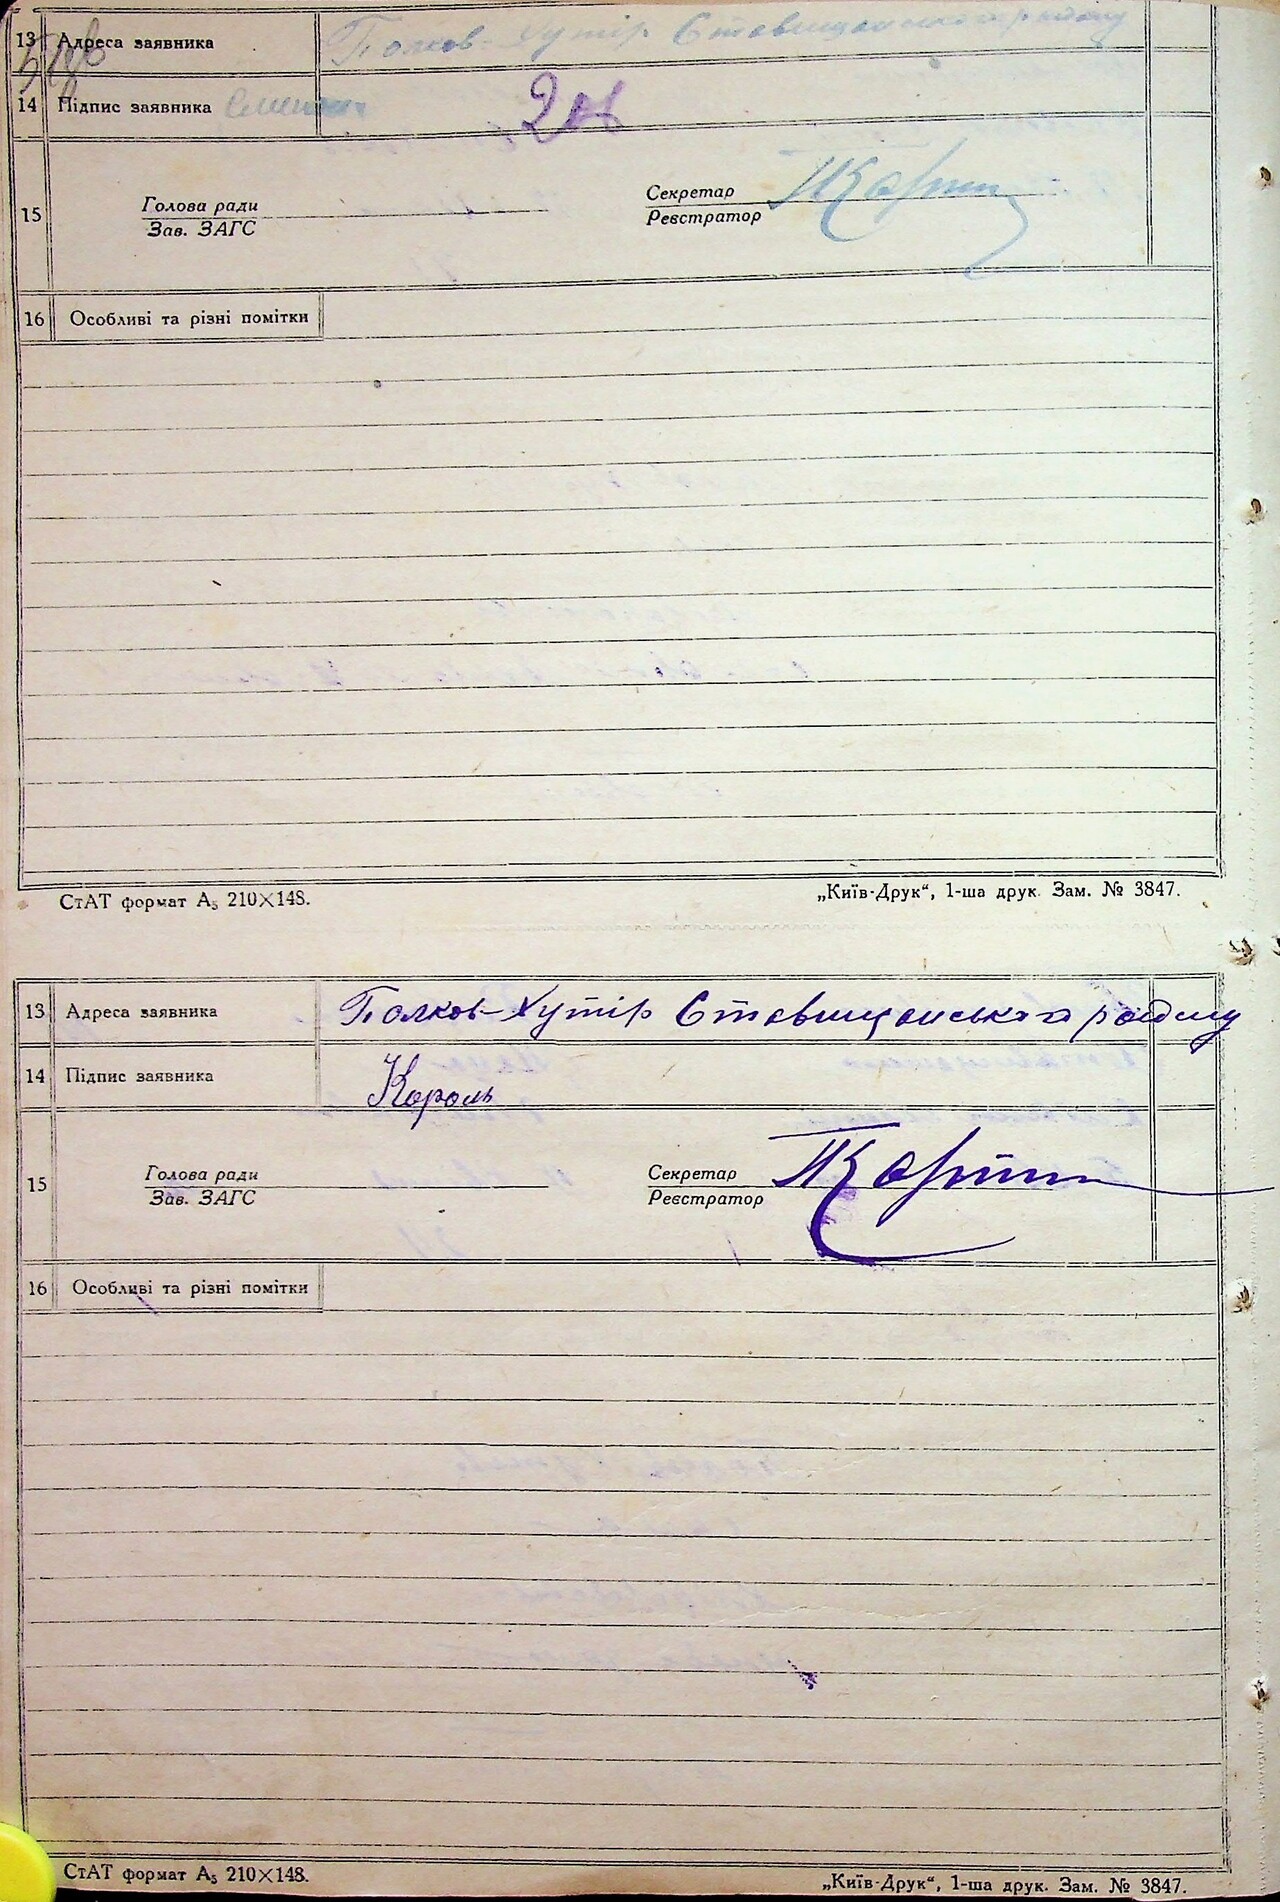 13 Адреса заявника Полков-Хутір Ставищанського району
14 Підпис заявника
15 Голова ради Секретар
Зав. ЗАГС Реєстратор
16 Особливі та різні помітки
СтАТ формат А₅ 210×148. „Київ-Друк“, 1-ша друк. Зам. № 3847.
13 Адреса заявника Полков-Хутір Ставищанського району
14 Підпис заявника Король
15 Голова ради Секретар
Зав. ЗАГС Реєстратор
16 Особливі та різні помітки
СтАТ формат А₅ 210×148. „Київ-Друк“, 1-ша друк. Зам. № 3847.